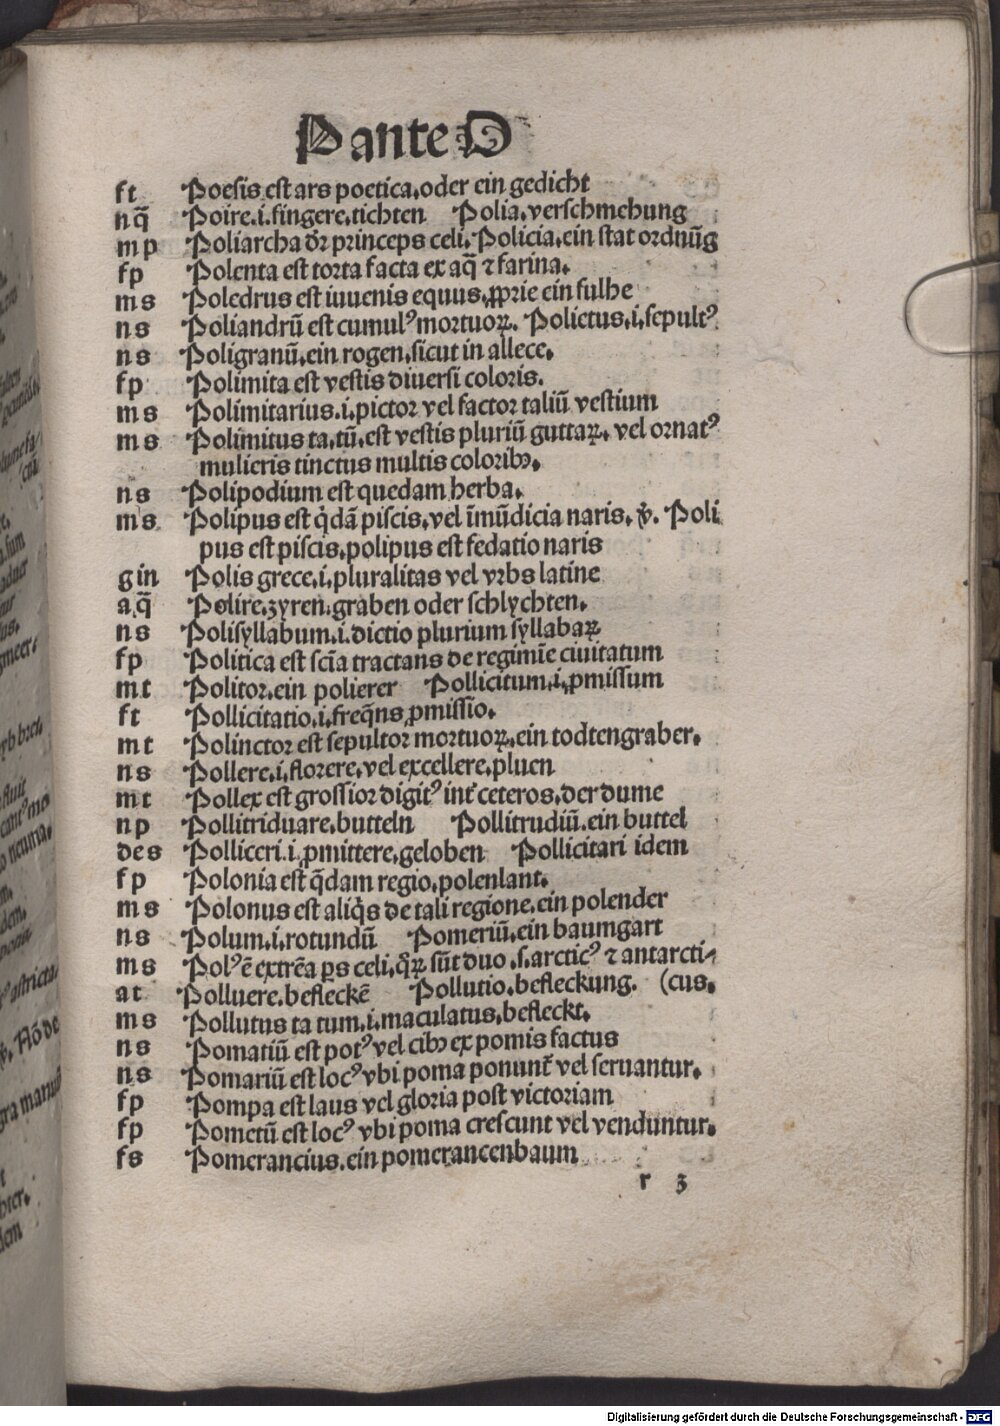 Pante O
ft Poesis est ars poetica.oder ein gedicht
nq̄ Poire.i.fingere.tichten Polia.verschmehung
mp Poliarcha dr̄ princeps celi.Policia.ein stat ordnūg
fp Polenta est torta facta ex aq̄ ⁊ farina.
ms Poledrus est iuuenis equus.ꝓprie ein fulhe
ns Poliandrū est cumulꝰ mortuoꝝ. Polictus.i.sepultꝰ
ns Poligranū.ein rogen.sicut in allece.
fp Polimita est vestis diuersi coloris.
ms Polimitarius.i.pictor vel factor taliū vestium
ms Polimitus ta.tū.est vestis pluriū guttaꝝ. vel ornatꝰ
mulieris tinctus multis coloribꝫ.
ns Polipodium est quedam herba.
ms Polipus est q̇dā piscis.vel īmūdicia naris. ꝟ. Poli
pus est piscis.polipus est fedatio naris
gin Polis grece.i.pluralitas vel vrbs latine
aq̄ Polire.zyren.graben oder schlychten.
ns Polisyllabum.i.dictio plurium syllabaꝝ
fp Politica est scīa tractans de regimīe ciuitatum
mt Politor.ein polierer Pollicitum.i.ꝓmissum
ft Pollicitatio.i.freq̄ns ꝓmissio.
mt Polinctor est sepultor mortuoꝝ.ein todtengraber.
ns Pollere.i.florere.vel excellere.pluen
mt Pollex est grossior digitꝰ int̄ ceteros.der dume
np Pollitriduare.butteln Pollitrudiū.ein buttel
des Polliceri.i.ꝓmittere.geloben Pollicitari idem
fp Polonia est q̄dam regio.polenlant.
ms Polonus est aliq̇s de tali regione.ein polender
ns Polum.i.rotundū Pomeriū.ein baumgart
ms Polꝰ ē extrēa ꝑs celi.q̄ꝝ sūt duo.s.arcticꝰ ⁊ antarcti-
at Polluere.befleckē Pollutio.befleckung. (cus.
ms Pollutus ta tum.i.maculatus.befleckt.
ns Pomatiū est potꝰ vel cibꝫ ex pomis factus
ns Pomariū est locꝰ vbi poma ponunt̄ vel seruantur.
fp Pompa est laus vel gloria post victoriam
fp Pometū est locꝰ vbi poma crescunt vel venduntur.
fs Pomerancius.ein pomerancenbaum
r 3
Digitalisierung gefördert durch die Deutsche Forschungsgemeinschaft - DFG